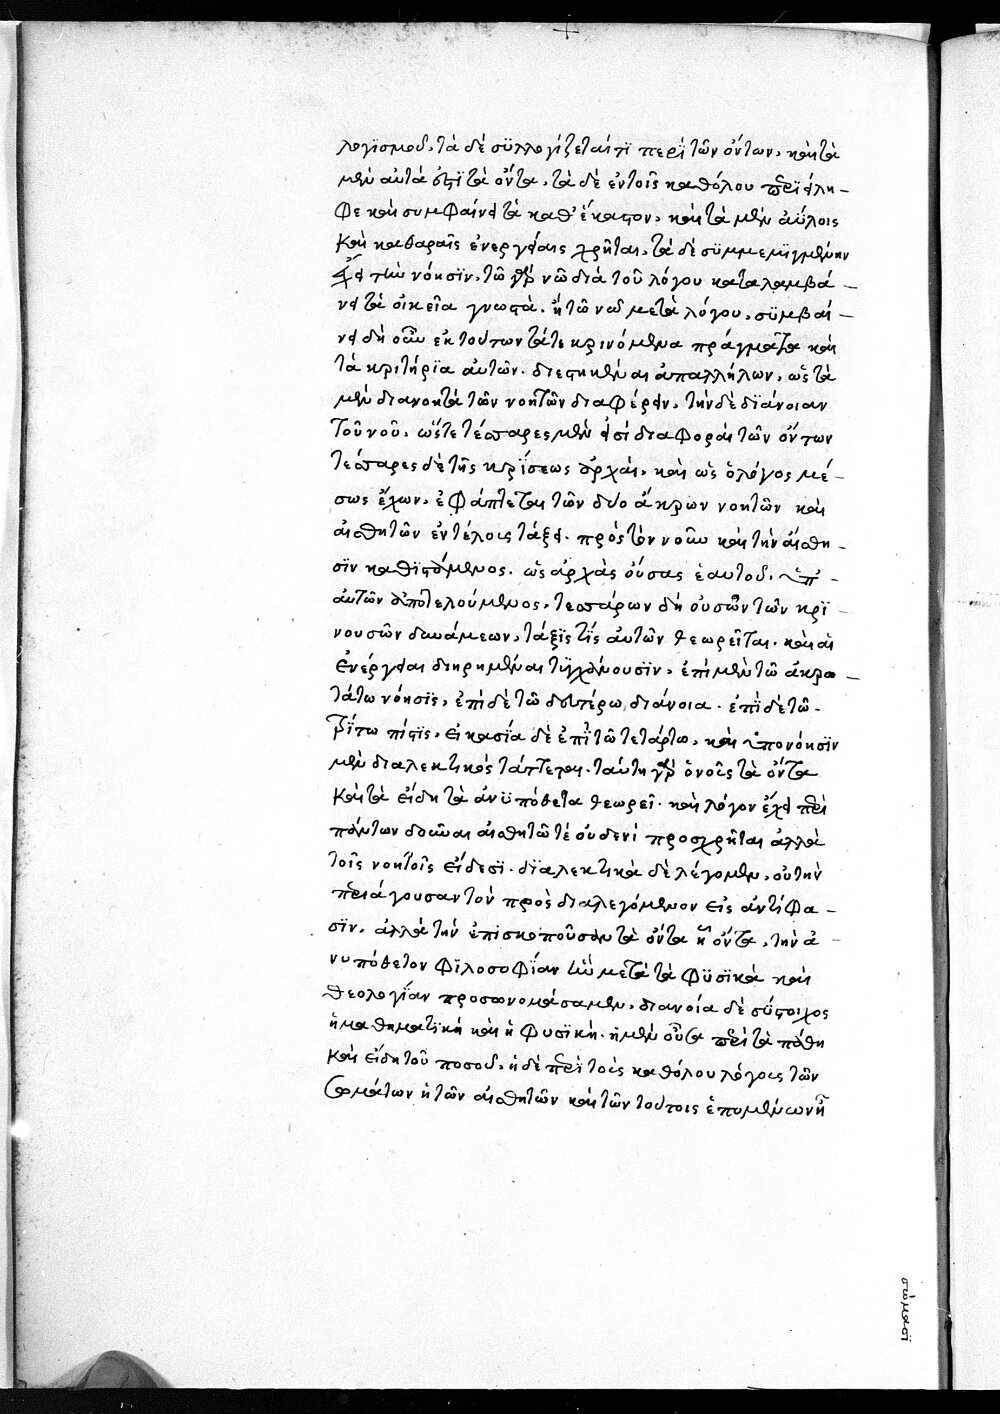 λογισμοῦ, τὰ δὲ συλλογίζεταί τι περὶ τῶν ὄντων, καὶ τὰ
μὲν αὐτά ἐστι τὰ ὄντα, τὰ δὲ ἐν τοῖς καθόλου περιείλη-
φε καὶ συμφαίνει τὰ καθ' ἕκαστον, καὶ τὰ μὲν ἀΰλοις
καὶ καθαραῖς ἐνεργείαις χρῆται, τὰ δὲ συμμεμιγμένην
ἔχει τὴν νόησιν, τῶ γὰρ νῶ διὰ τοῦ λόγου καταλαμβά-
νει τὰ οἰκεῖα γνωστά. ἢ τῶ νῶ μετὰ λόγου, συμβαί-
νει δὴ οὖν ἐκ τούτων τά τε κρινόμενα πράγματα καὶ
τὰ κριτήρια αὐτῶν. διεστηκέναι ἀπαλλήλων, ὡς τὰ
μὲν διανοητὰ τῶν νοητῶν διαφέρειν, τὴν δὲ διάνοιαν
τοῦ νοῦ, ὥστε τέσσαρες μὲν εἰσὶ διαφοραὶ τῶν ὄντων
τέσσαρες δὲ τῆς κρίσεως ἀρχαί, καὶ ὡς ὁ λόγος μέ-
σως ἔχων, ἐφάπτεται τῶν δύο ἄκρων νοητῶν καὶ
αἰσθητῶν ἐν τέλοις τάξει. πρὸς τὸν νοῦν καὶ τὴν αἴσθη-
σιν καθιστάμενος. ὡς ἀρχὰς οὔσας ἑαυτοῦ. ὑπ'
αὐτῶν ἀποτελούμενος, τεσσάρων δὴ οὐσῶν τῶν κρι-
νουσῶν δυνάμεων, τάξις τίς αὐτῶν θεωρεῖται. καὶ αἱ
ἐνέργειαι διηρημέναι τυγχάνουσιν, ἐπὶ μὲν τῶ ἀκρο-
τάτω νόησις, ἐπὶ δὲ τῶ δευτέρω, διάνοια. ἐπὶ δὲ τῶ
τρίτω πίστις, εἰκασία δὲ ἐπὶ τῶ τετάρτω, καὶ ὑπονόησιν
μὲν διαλεκτικὸς τάττεται. ταύτη γὰρ ὁ νοῦς τὰ ὄντα
καὶ τὰ εἴδη τὰ ἀνυπόθετα θεωρεῖ. καὶ λόγον ἔχει περὶ
πάντων δοῦναι αἰσθητῶ τὲ οὐδενὶ προσχρῆται ἀλλὰ
τοῖς νοητοῖς εἴδεσι. διαλεκτικὰ δὲ λέγομεν, οὐ τὴν
περιάγουσαν τὸν προσδιαλεγόμενον εἰς ἀντίφα-
σιν, ἀλλὰ τὴν ἐπισκοποῦσαν τὰ ὄντα ἧ ὄντα, τὴν ἀ-
νυπόθετον φιλοσοφίαν ἣν μετὰ τὰ φυσικὰ καὶ
θεολογίαν προσωνομάσαμεν, διανοία δὲ σύστοιχος
ἡ μαθηματικὴ καὶ ἡ φυσικὴ. ἡ μὲν οὖσα περὶ τὰ πάθη
καὶ εἴδη τοῦ ποσοῦ, ἡ δὲ περὶ τοὺς καθόλου λόγους τῶν
σωμάτων ἢ τῶν αἰσθητῶν καὶ τῶν τούτοις ἑπομένων ἧ
σώμασι